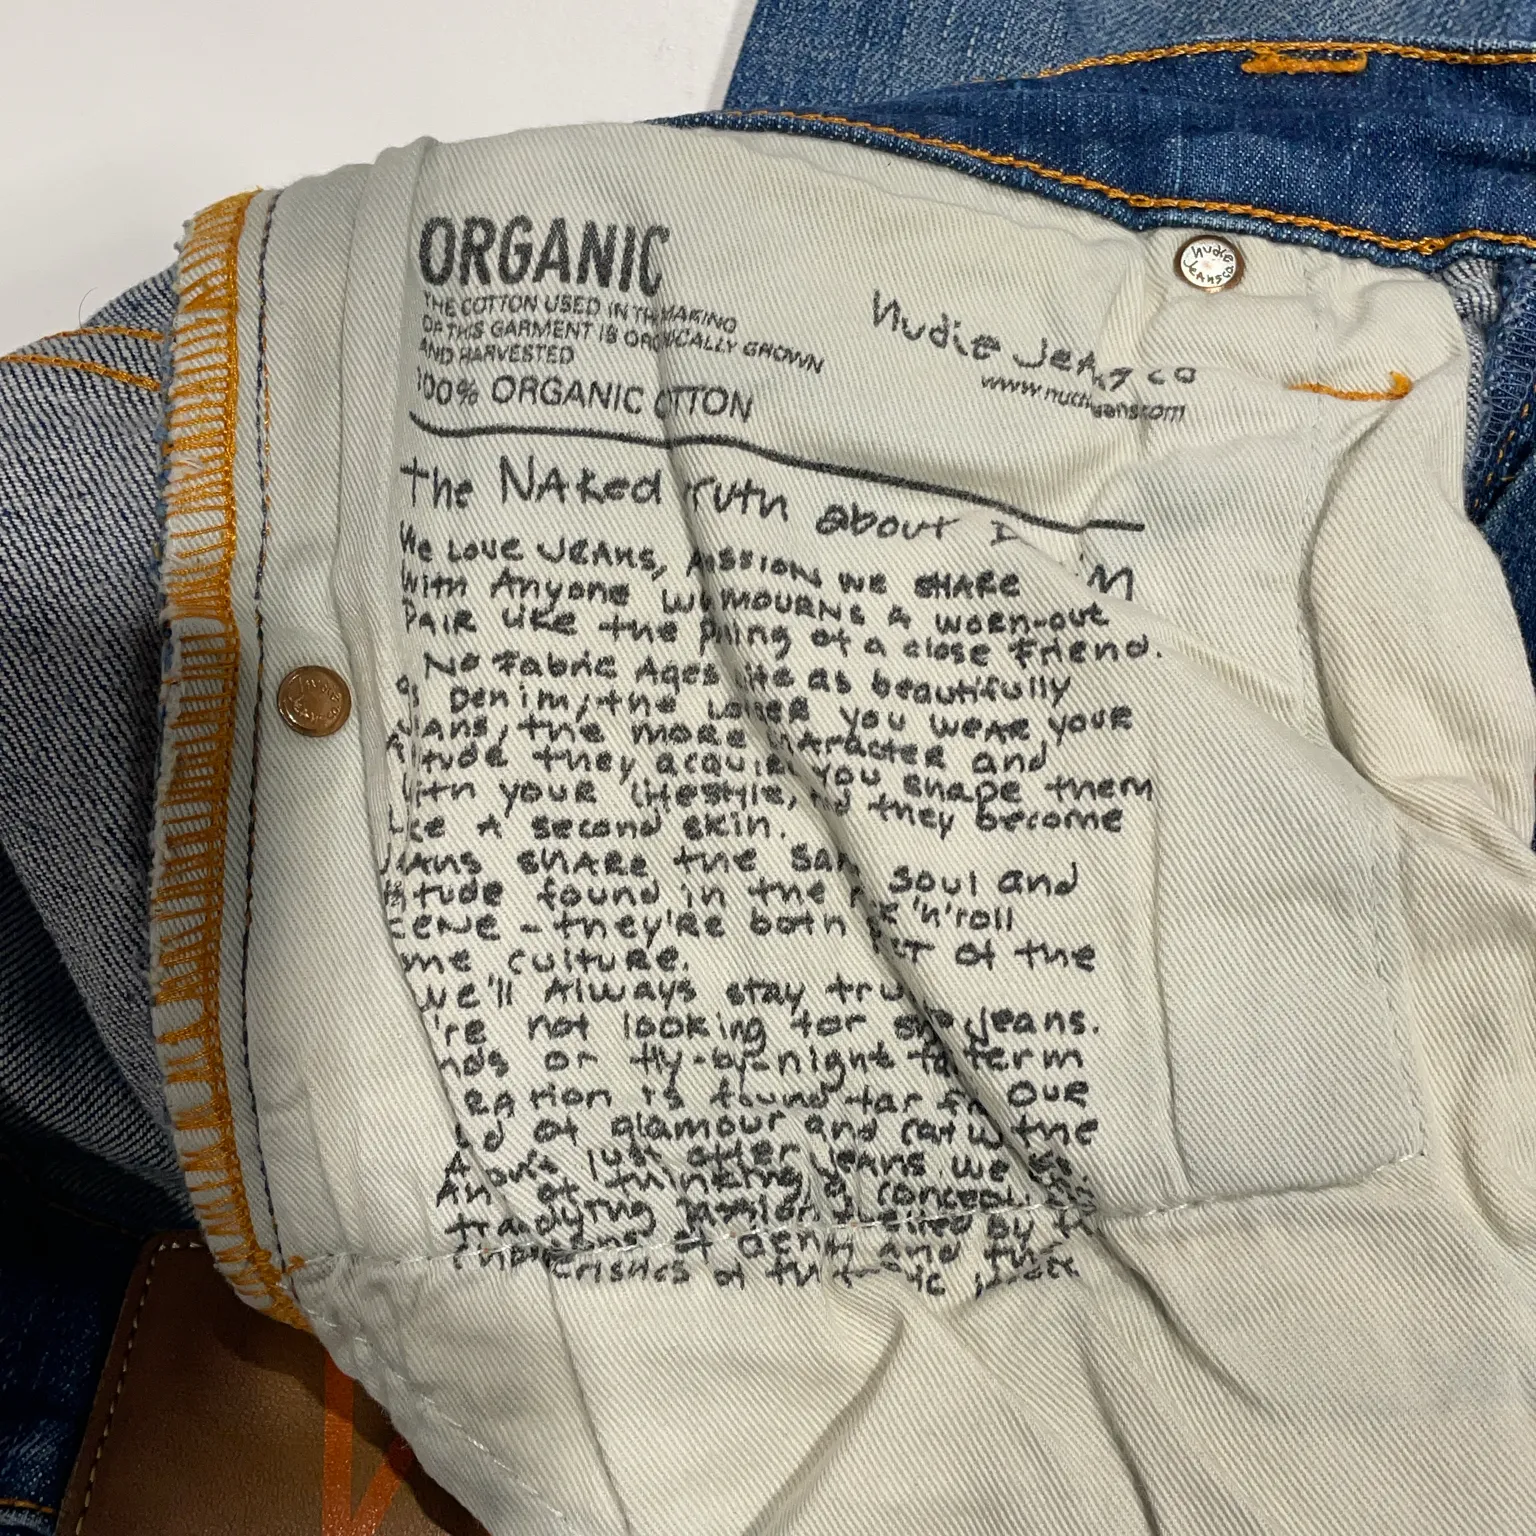 ORGANIC
THE COTTON USED IN THE MAKING
OF THIS GARMENT IS ORGANICALLY GROWN
AND HARVESTED
100% ORGANIC COTTON
Nudie Jeans co
www.nudiejeans.com
nudie
jeans co
the NAked truth about
We Love JeANs, PASSION we SHARE
with Anyone who MOURNS A WORN-out
PAIR like the passing of a close friend.
No fabric Ages quite as beautifully
as Denim, the longer you weAR youR
jeans, the more character and
Attitude they acquire. you shape them
with your lifestyle, and they become
like A second skin.
JeANS SHARe the same soul and
attitude found in the rock 'n' roll
scene - they're both part of the
same culture.
we'll Always stay true
we're not looking for jeans.
or fly-by-night
is found far from OUR
of glamour and catwalk
just after jeans. we
of thinking concept.
passion fuelled by
of denim and